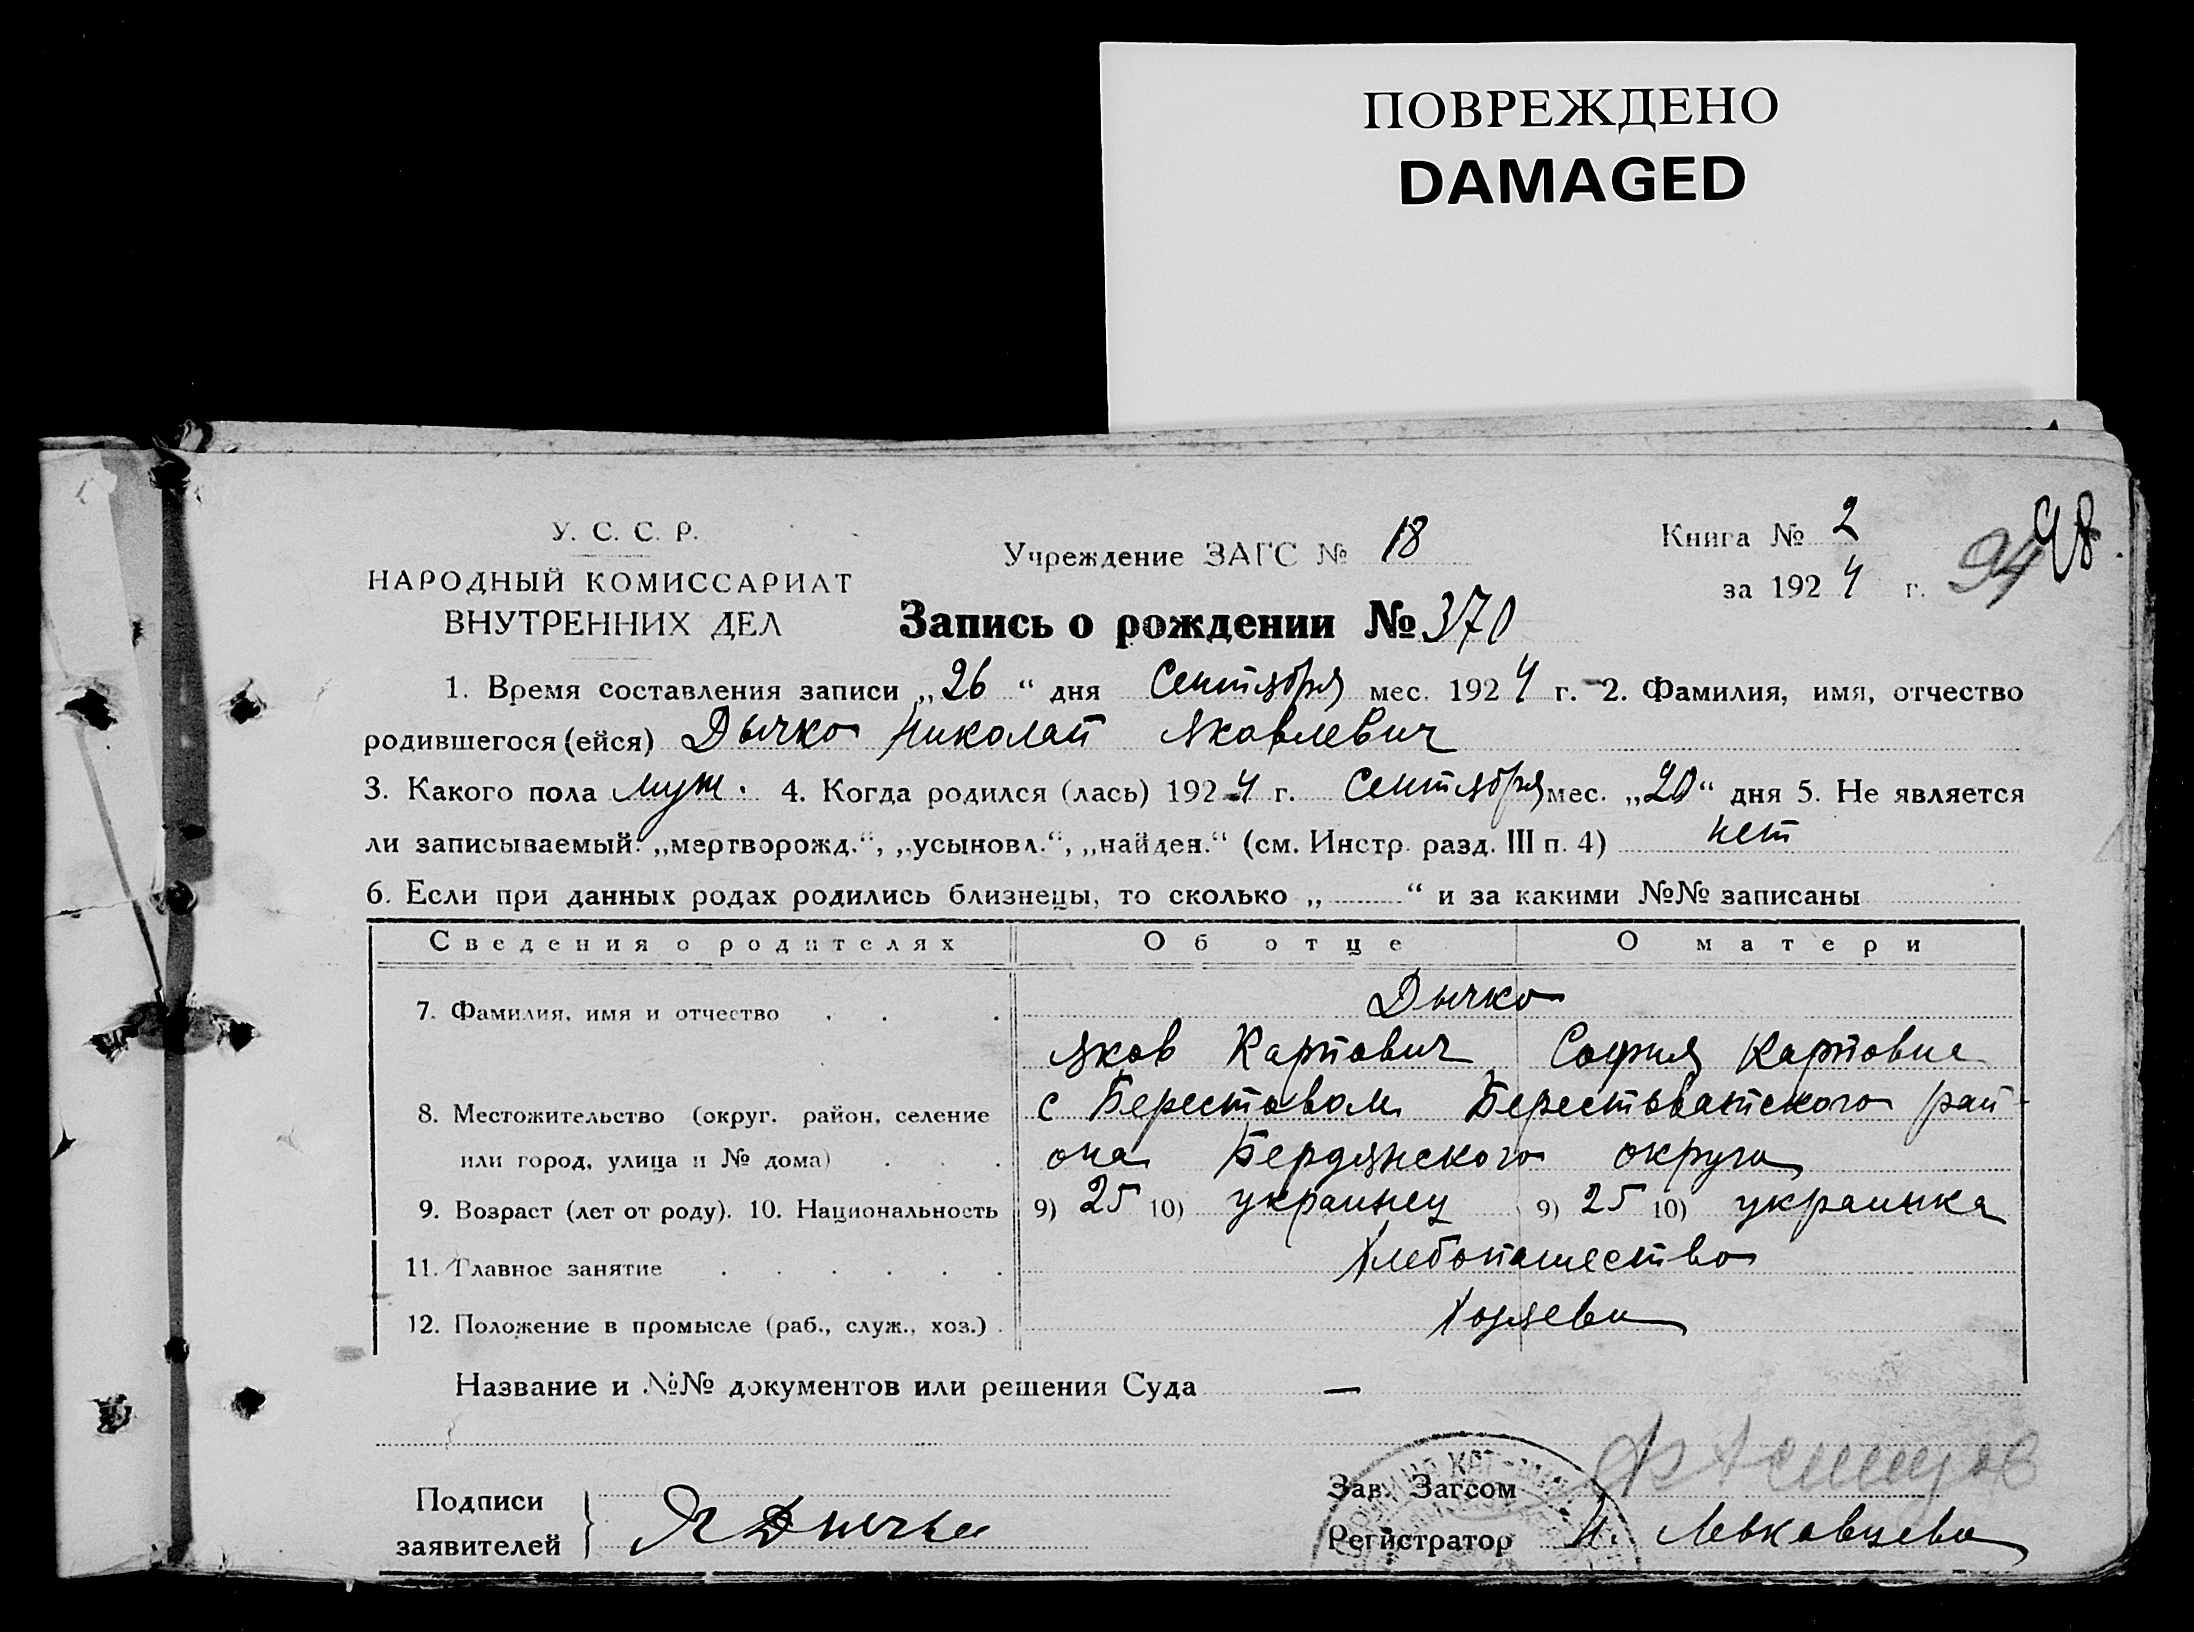 ПОВРЕЖДЕНО
DAMAGED
У. С. С. Р.
НАРОДНЫЙ КОМИССАРИАТ
ВНУТРЕННИХ ДЕЛ
Учреждение ЗАГС № 18
Книга № 2
за 1924 г.
94 98
Запись о рождении № 370
1. Время составления записи „26“ дня Сентября мес. 1924 г. 2. Фамилия, имя, отчество
родившегося (ейся) Дычко Николай Яковлевич
3. Какого пола муж. 4. Когда родился (лась) 1924 г. Сентября мес. „20“ дня 5. Не является
ли записываемый: „мертворожд.“, „усыновл.“, „найден.“ (см. Инстр. разд. III п. 4) нет
6. Если при данных родах родились близнецы, то сколько „ “ и за какими №№ записаны
Сведения о родителях Об отце О матери
7. Фамилия, имя и отчество . . . Дычко
Яков Карпович София Карповна
8. Местожительство (округ. район, селение с Берестовом Берестоватского рай
или город, улица и № дома) . . . она Бердянского округа
9. Возраст (лет от роду). 10. Национальность 9) 25 10) украинец 9) 25 10) украинка
11. Главное занятие . . . . . . Хлебопашество
12. Положение в промысле (раб., служ., хоз.) . Хозяева
Название и №№ документов или решения Суда —
Подписи
заявителей
Я Дычко
Зав. Загсом
Регистратор Н. Левковцева